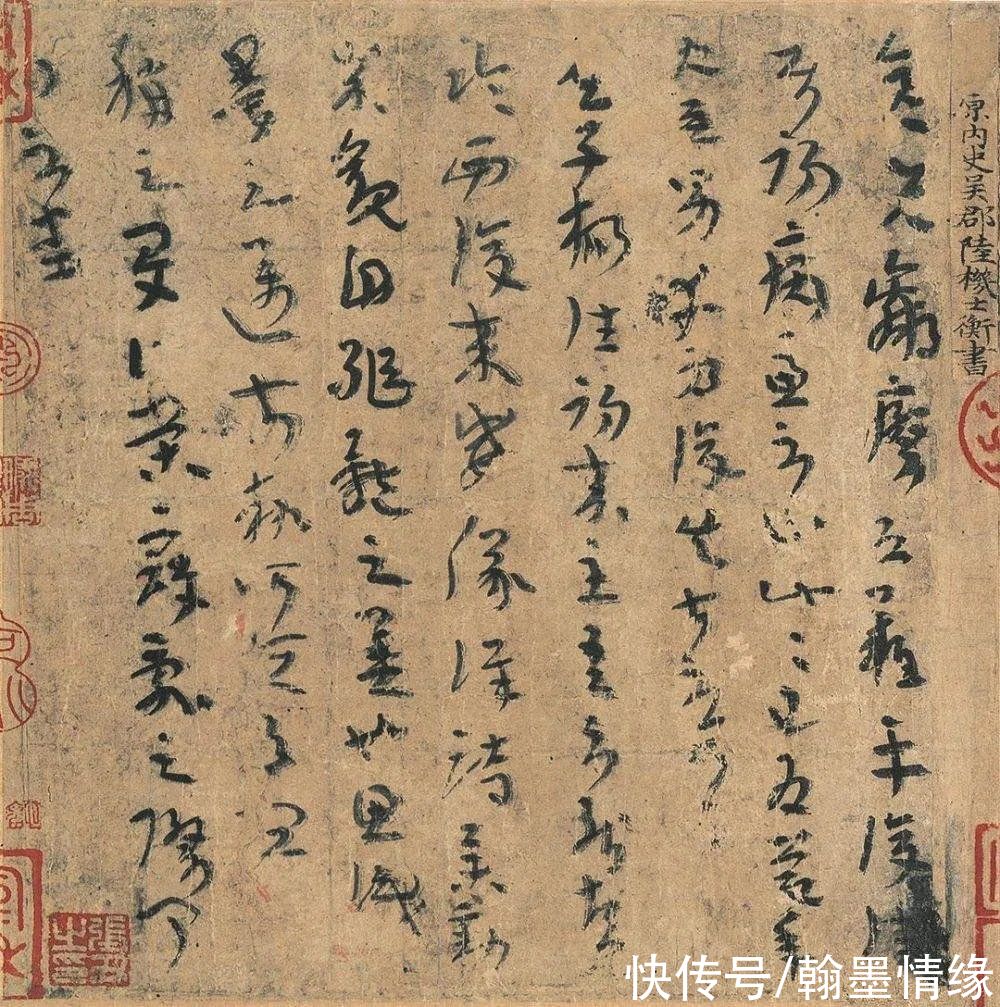 原內史吳郡陸機士衡書
彦先羸瘵恐難平復往
属初病慮不止此此已為慶承
使唯男幸為復失前憂耳
吳子楊往初來主吾不能盡
臨西復來威儀詳跱舉動
成觀自軀體之美也思識
量之邁前執所恒有宜
稱之夏伯榮寇亂之際聞
問不悉
快传号/翰墨情缘